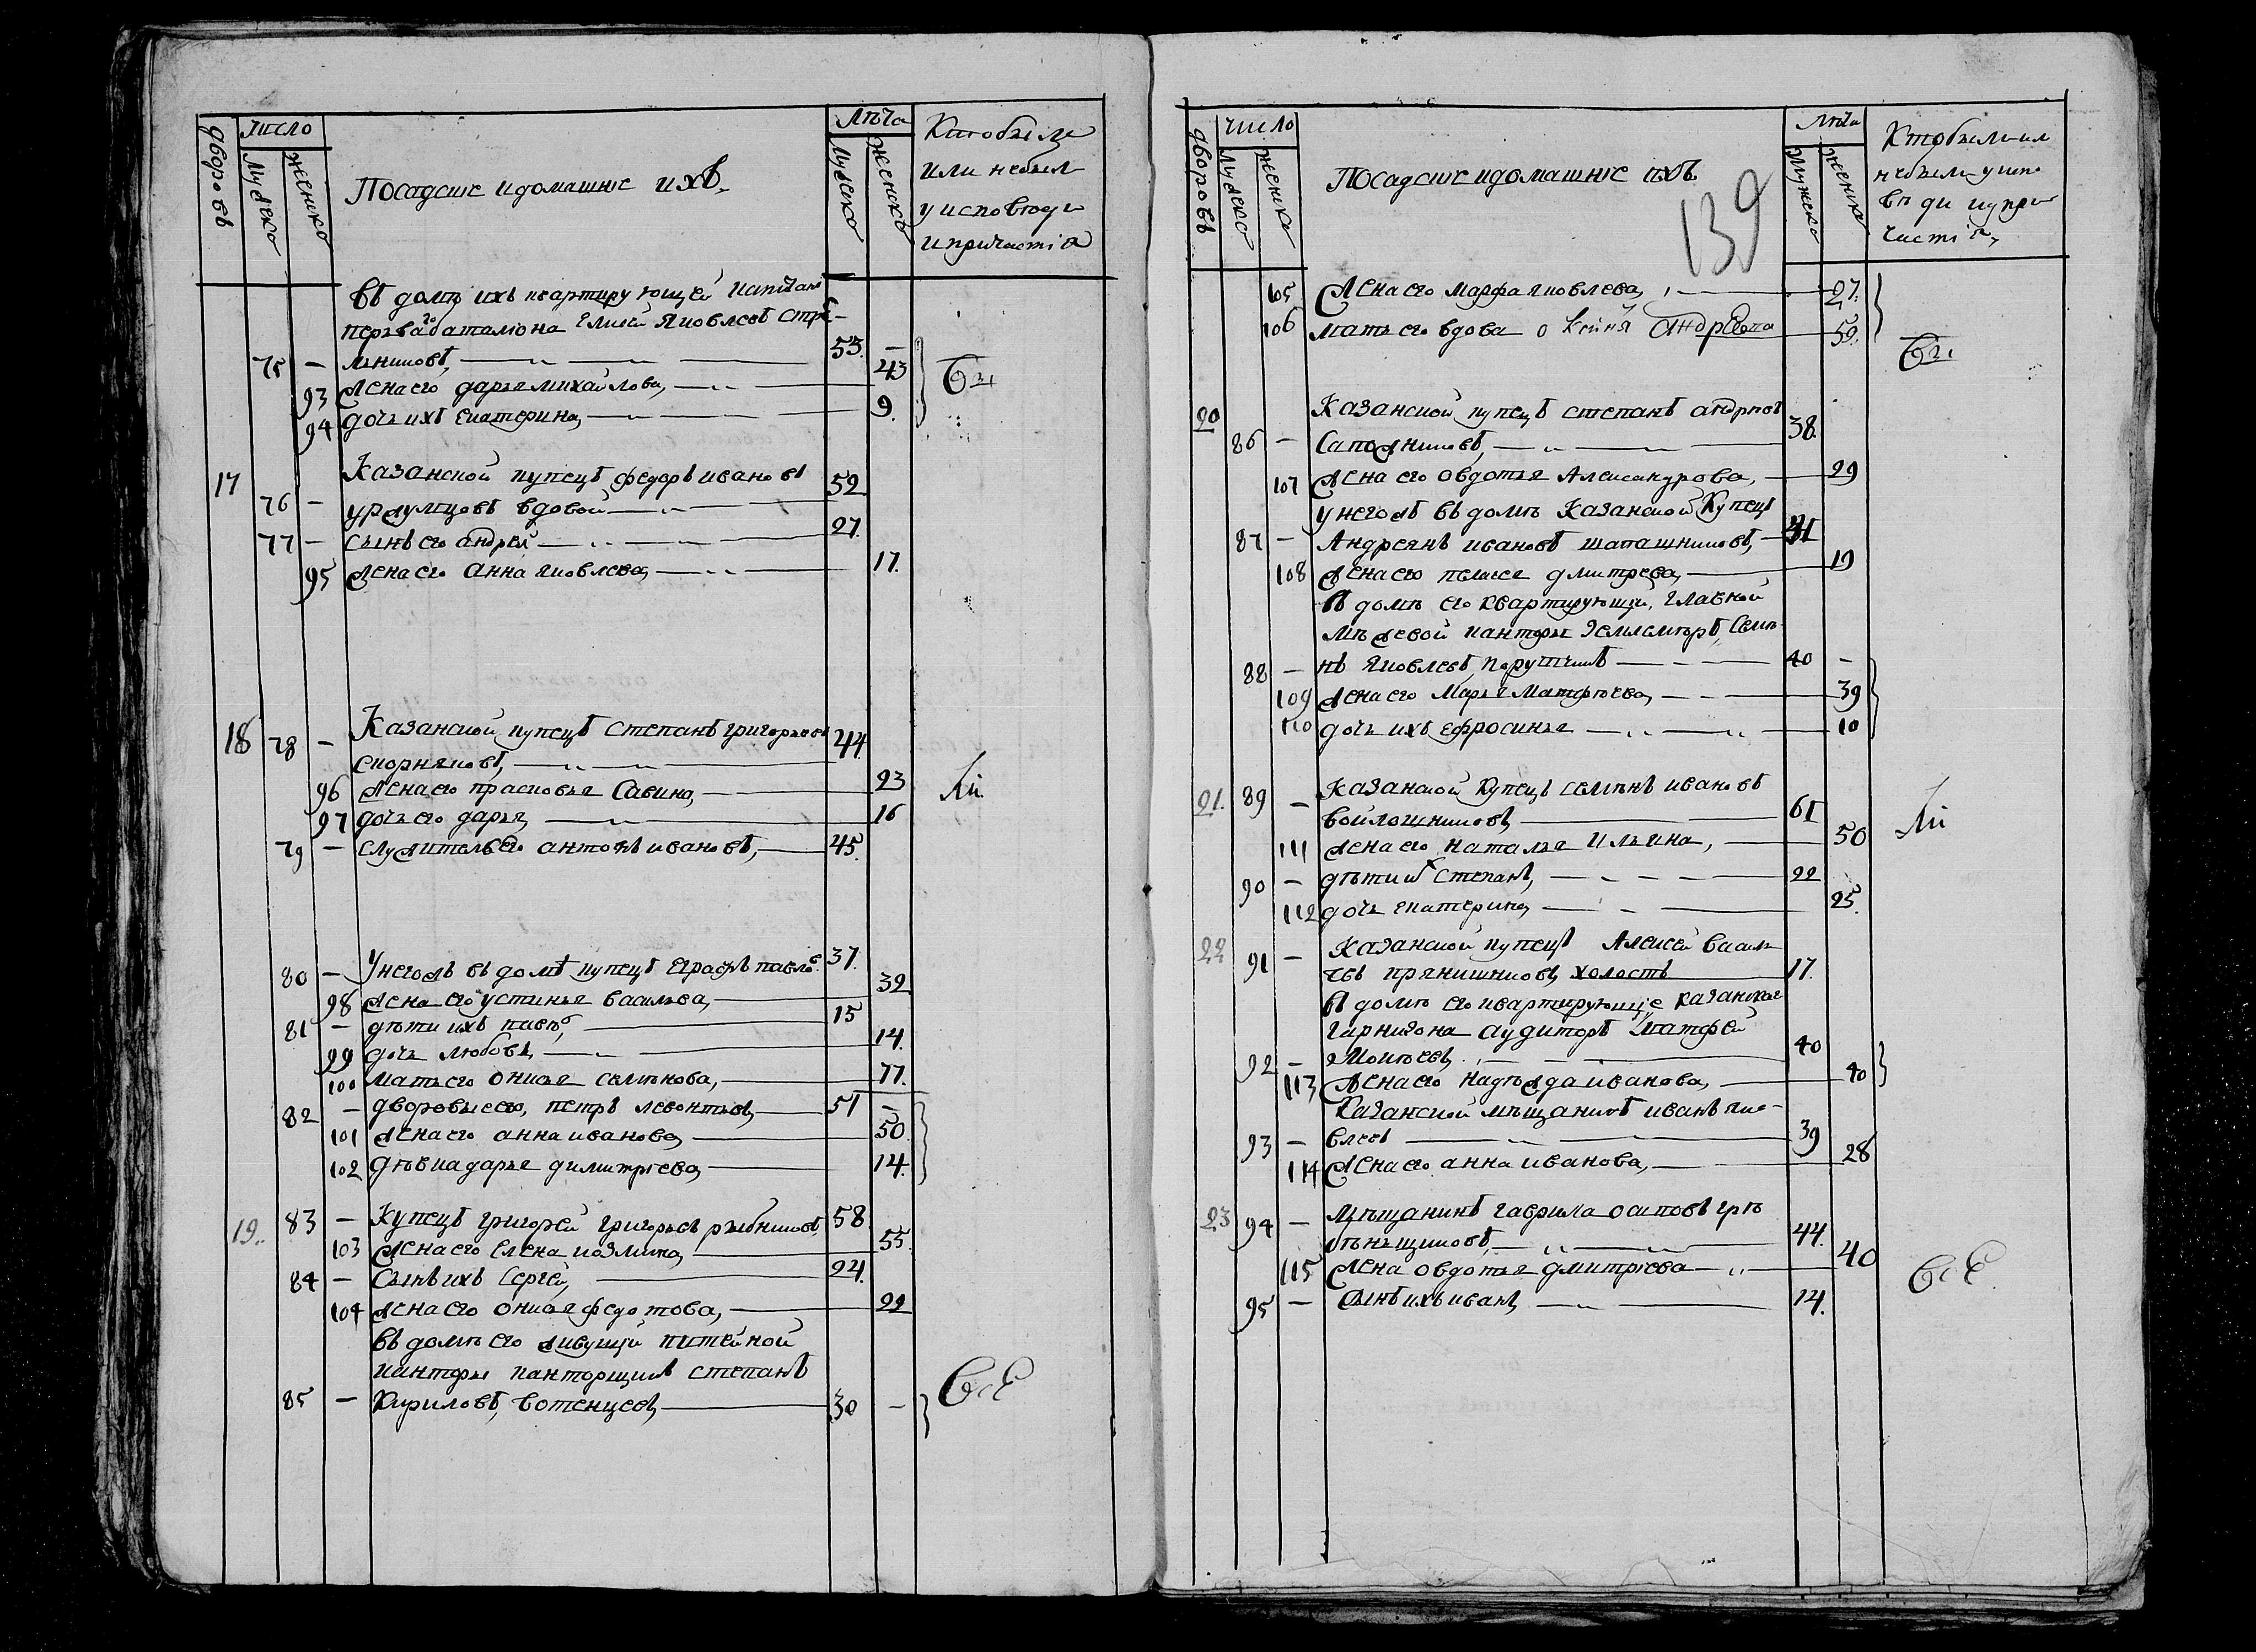 дворовъ
число
мужеско
женско
Посадские и домашние ихъ
лѣта
мужеско
женско
Кто были
или небыл
у исповѣди
и причастiя
въ домѣ ихъ квартирующей капитан
перваго баталиона Яковлевъ Стре
75 — льниковъ, 53. —
93 Жена его дарья михайлова, 43
94 дочь ихъ екатерина, 9.
Бы
17 Казанской купецъ федоръ ивановъ
76 — уржумцовъ вдовой 52
77 — сынъ его андрей 27.
95 Жена его анна яковлева, 17.
18 78 — Казанской купецъ степанъ григорьевъ 44.
скорняковъ,
96 Жена его прасковья Савина, 23
97 дочь его дарья, 16
79 — служитель его антонъ ивановъ, 45.
ли
80 — У негожъ въ домѣ купецъ павлов 37.
98 Жена его устинья васильева, 32
81 — дѣти ихъ 15
99 дочь любовь, 14.
100 мать его онисья семѣнова, 77.
82 — дворовые его, петръ левонтьевъ, 51 —
101 Жена его анна иванова, 50.
102 дѣвка дарья димитрiева, 14.
19. 83 — Купецъ григорей григорьевъ рыбниковъ, 58.
103 Жена его Елена козмина, 55.
84 — Сынъ ихъ Сергей, 24.
104 Жена его онисья федотова, 22
въ домѣ его живущей питейной
канторы канторщикъ степанъ
85 — Кириловъ, вотенцевъ, 30 —
всѣ
дворовъ
число
мужеско
женско
Посадские и домашние ихъ
139
лѣта
мужеско
женско
Кто были ил
небыли у испо
вѣди и при
частiя,
105 Жена его марфа яковлева, 27.
106 мать его вдова Андреева 59.
Бы
20 Казанской купецъ степанъ андреевъ
86 — Сапожниковъ, 38.
107 Жена его овдотья Александрова, 29
у негожъ въ домѣ Казанской Купецъ
87 — Андреянъ ивановъ шапашниковъ, 41
108 Жена его пелагея дмитрева, 19
въ домѣ его квартирующей, главной
межевой канторы землемѣръ, Семѣ
88 — нъ Яковлевъ, порутчикъ 40 —
109 Жена его Марья Матфѣева, 39
110 дочь ихъ ефросинья 10
21. 89 — Казанской Купецъ семѣнъ ивановъ
войлошниковъ, 61
111 Жена его наталья Ильина, 50
90 — дѣти ихъ Степанъ, 22
112 дочь екатерина, 25.
ли
22 91 — Казанской купецъ Алексей Василь
евъ прянишниковъ, холостъ 17.
въ домѣ его квартирующiе казанскаго
гарнизона аудиторъ матфей
92 — Мокѣевъ, 40
113 Жена его надѣжда иванова, 40
Казанской мѣщанинъ иванъ яко-
93 — влевъ 39
114 Жена его анна иванова, 28
23 94 — Мѣщанинъ гаврила осиповъ грѣ
бѣнщиковъ, 44.
115 Жена овдотья дмитрiева 40
95 — Сынъ ихъ иванъ, 14.
всѣ